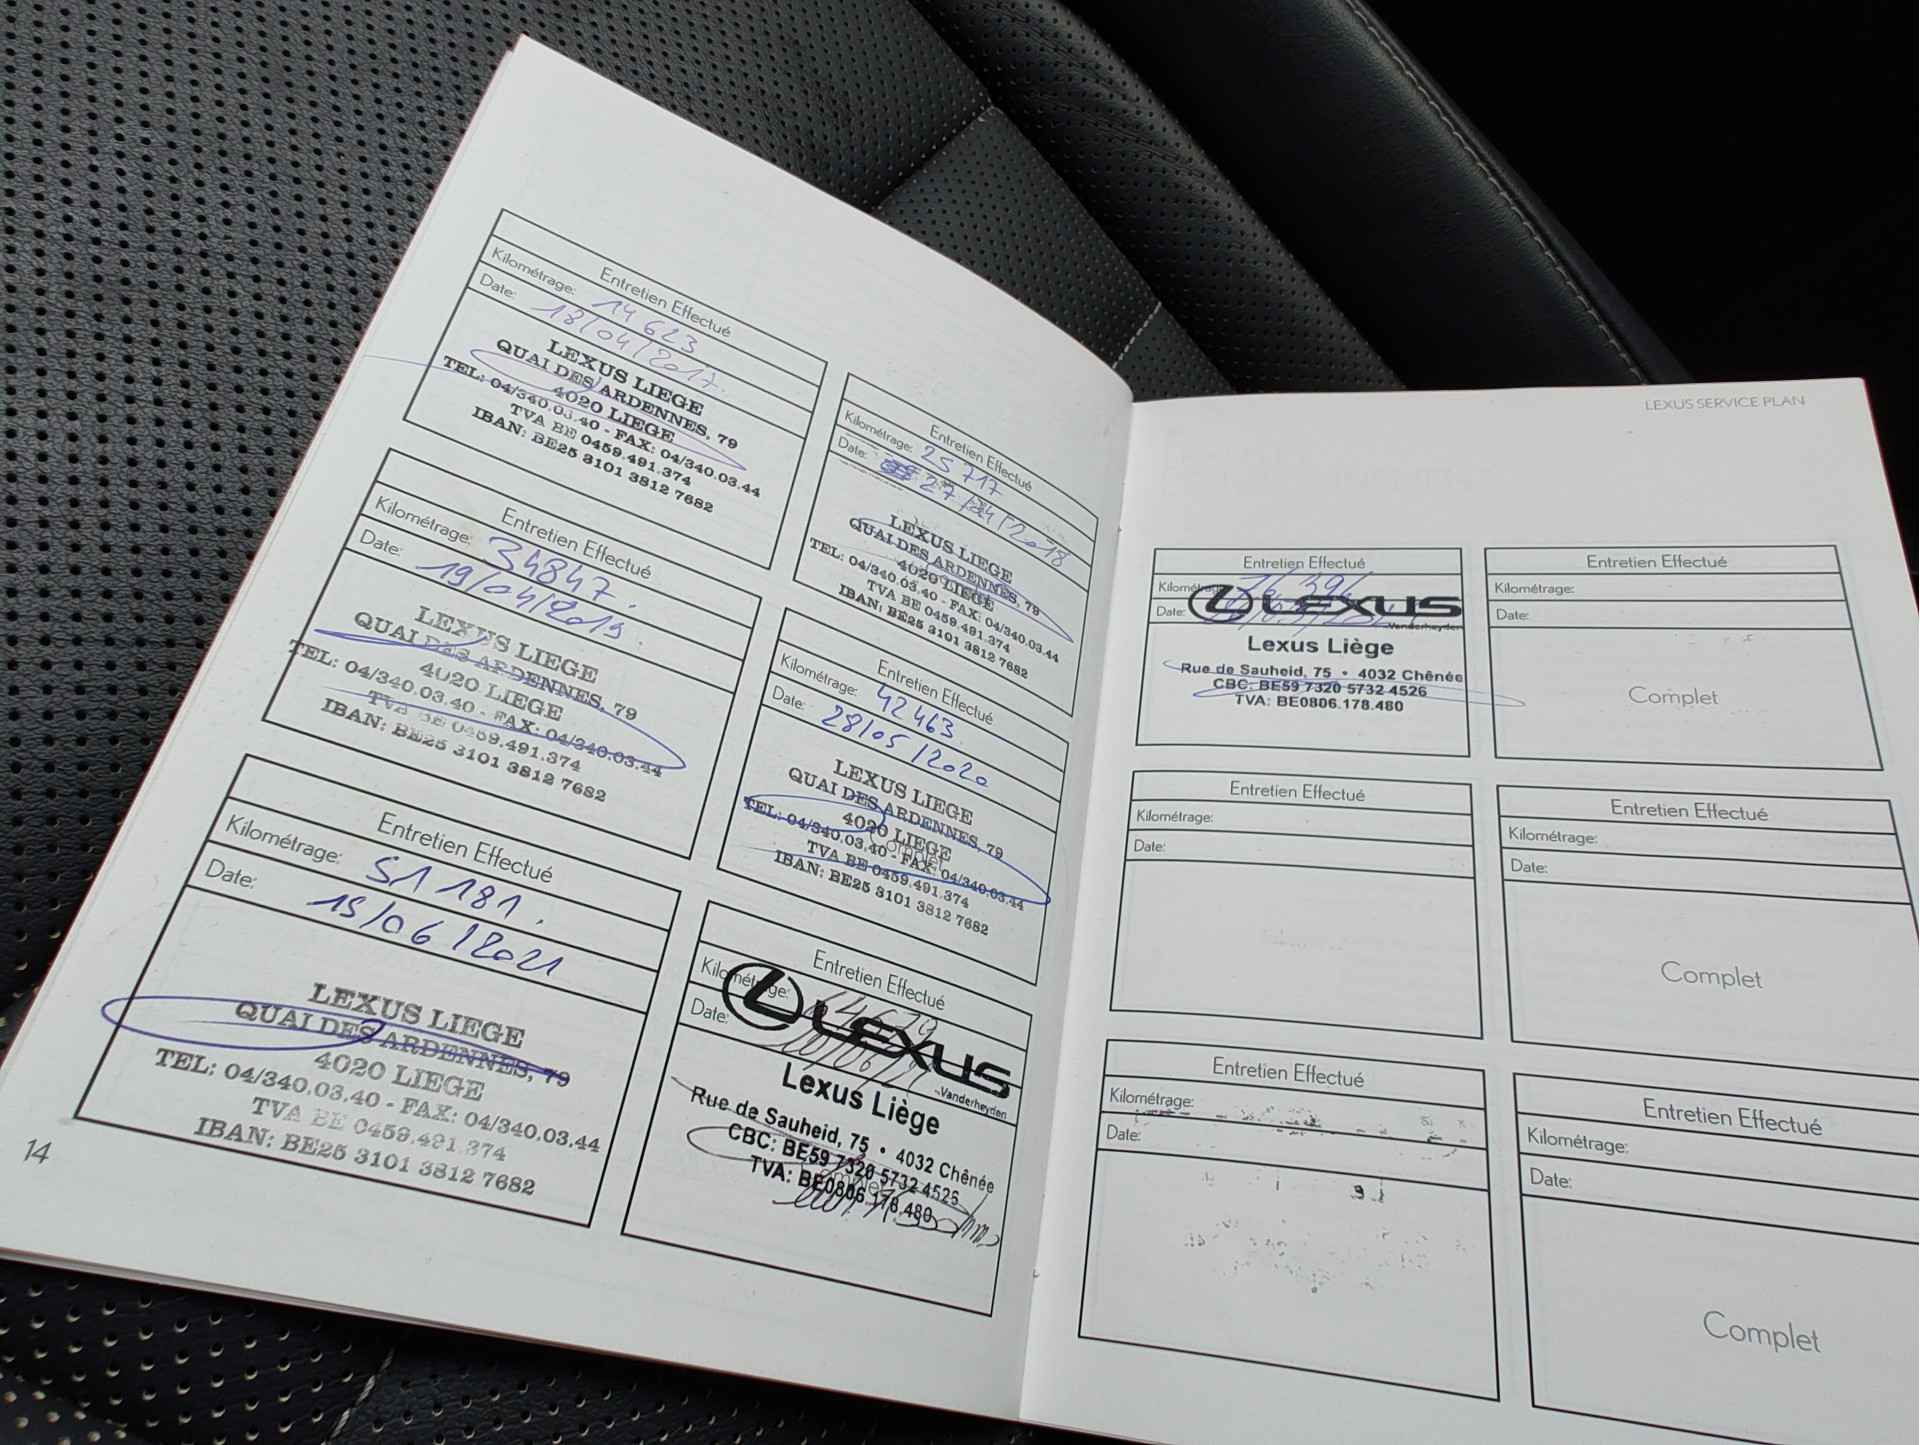 Entretien Effectué
Kilométrage: 14 623
Date: 18/04/2017.
LEXUS LIEGE
QUAI DES ARDENNES, 79
4020 LIEGE
TEL: 04/340.03.40 - FAX: 04/340.03.44
TVA BE 0459.491.374
IBAN: BE25 3101 3812 7682
Entretien Effectué
Kilométrage: 25 717
Date: 27/04/2018
LEXUS LIEGE
QUAI DES ARDENNES, 79
4020 LIEGE
TEL: 04/340.03.40 - FAX: 04/340.03.44
TVA BE 0459.491.374
IBAN: BE25 3101 3812 7682
Entretien Effectué
Kilométrage: 34847.
Date: 19/04/2019.
LEXUS LIEGE
QUAI DES ARDENNES, 79
4020 LIEGE
TEL: 04/340.03.40 - FAX: 04/340.03.44
TVA BE 0459.491.374
IBAN: BE25 3101 3812 7682
Entretien Effectué
Kilométrage: 42 463.
Date: 28/05/2020
LEXUS LIEGE
QUAI DES ARDENNES, 79
4020 LIEGE
Complet
TEL: 04/340.03.40 - FAX: 04/340.03.44
TVA BE 0459.491.374
IBAN: BE25 3101 3812 7682
Entretien Effectué
Kilométrage: 51 181.
Date: 15/06/2021
LEXUS LIEGE
QUAI DES ARDENNES, 79
4020 LIEGE
TEL: 04/340.03.40 - FAX: 04/340.03.44
TVA BE 0459.491.374
IBAN: BE25 3101 3812 7682
Entretien Effectué
Kilométrage:
Date:
LEXUS
Vanderheyden
Lexus Liège
Rue de Sauheid, 75 • 4032 Chênée
CBC: BE59 7320 5732 4526
Complet
TVA: BE0806.178.480
14
LEXUS SERVICE PLAN
Entretien Effectué
Kilométrage:
Date:
LEXUS
Vanderheyden
Lexus Liège
Rue de Sauheid, 75 • 4032 Chênée
CBC: BE59 7320 5732 4526
TVA: BE0806.178.480
Entretien Effectué
Kilométrage:
Date:
Complet
Entretien Effectué
Kilométrage:
Date:
Entretien Effectué
Kilométrage:
Date:
Complet
Entretien Effectué
Kilométrage:
Date:
Entretien Effectué
Kilométrage:
Date:
Complet